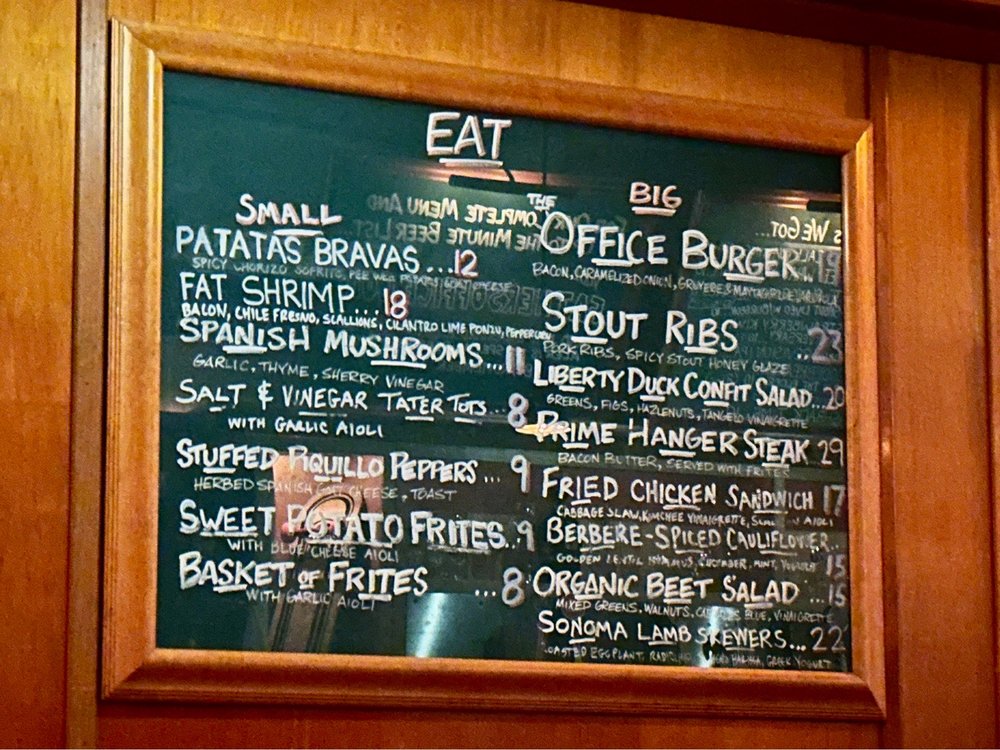 EAT
SMALL
PATATAS BRAVAS...12
SPICY CHORIZO SOFRITO, PEE WEE POTATO, GOAT CHEESE
FAT SHRIMP...18
BACON, CHILE FRESNO, SCALLIONS, CILANTRO LIME PONZU, PEPPERCORN
SPANISH MUSHROOMS...11
GARLIC, THYME, SHERRY VINEGAR
SALT & VINEGAR TATER TOTS...8
WITH GARLIC AIOLI
STUFFED PIQUILLO PEPPERS...9
HERBED SPANISH GOAT CHEESE, TOAST
SWEET POTATO FRITES..9
WITH BLUE CHEESE AIOLI
BASKET OF FRITES ...8
WITH GARLIC AIOLI
BIG
THE OFFICE BURGER..19
BACON, CARAMELIZED ONION, GRUYERE & MAYTAG BLUE, ARUGULA
STOUT RIBS ..23
PORK RIBS, SPICY STOUT HONEY GLAZE
LIBERTY DUCK CONFIT SALAD...20
GREENS, FIGS, HAZLENUTS, TANGELO VINAIGRETTE
PRIME HANGER STEAK 29
BACON BUTTER, SERVED WITH FRITES
FRIED CHICKEN SANDWICH 17
CABBAGE SLAW, KIMCHEE VINAIGRETTE, AIOLI
BERBERE-SPICED CAULIFLOWER..
GOLDEN LENTIL HUMMUS, CUCUMBER, MINT, YOGURT 15
ORGANIC BEET SALAD ...15
MIXED GREENS, WALNUTS, BLUE, VINAIGRETTE
SONOMA LAMB SKEWERS...22
ROASTED EGGPLANT, HARISSA, GREEK YOGURT